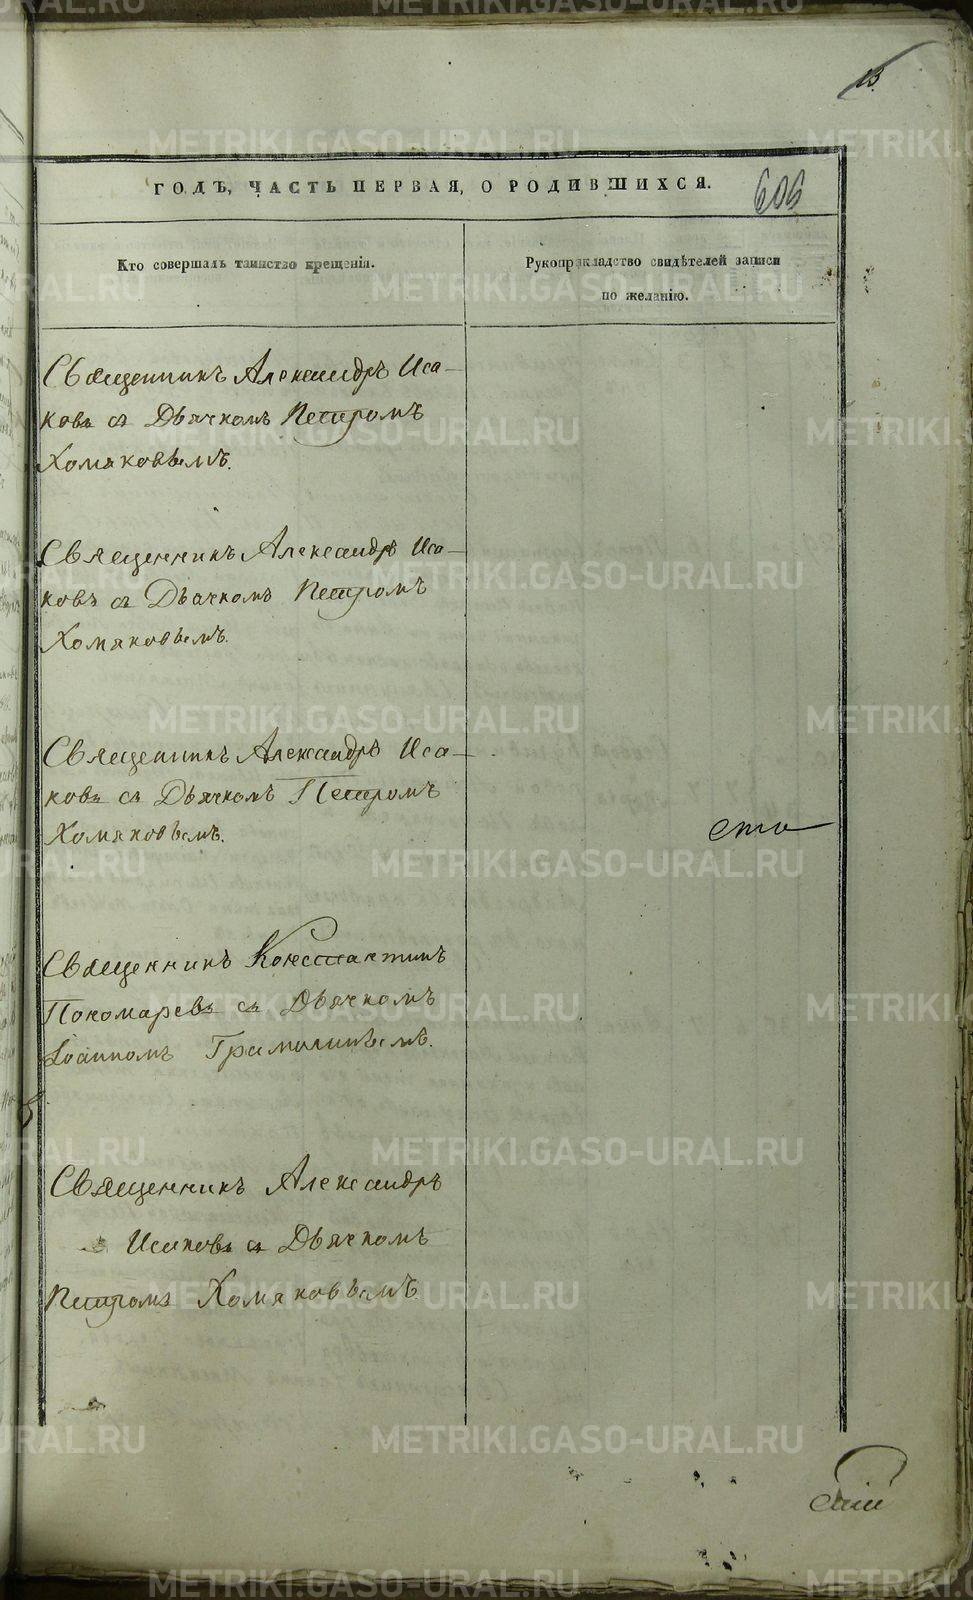 13.
ГОДЪ, ЧАСТЬ ПЕРВАЯ, О РОДИВШИХСЯ.
606
Кто совершалъ таинство крещенія.
Рукоприкладство свидѣтелей записи
по желанію.
Священникъ Александръ Иса-
ковъ съ Дьячкомъ Петромъ
Хомяковымъ.
Священникъ Александръ Иса-
ковъ съ Дьячкомъ Петромъ
Хомяковымъ.
Священникъ Александръ Иса-
ковъ съ Дьячкомъ Петромъ
Хомяковымъ.
Священникъ Константинъ
Пономаревъ съ Дьячкомъ
Іоанномъ
Священникъ Александръ
Исаковъ съ Дьячкомъ
Петромъ Хомяковымъ.
METRIKI.GASO-URAL.RU